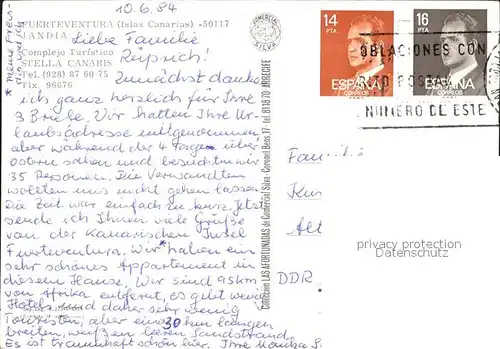 10.6.84
FUERTEVENTURA (Islas Canarias) -50117
JANDIA
Liebe Familie
Complejo Turístico
STELLA CANARIS
Tel. (928) 87 60 75
Tlx. 96676
* meine Freundin und ich
Zunächst danke
ich ganz herzlich für Ihre
3 Briefe. Wir hatten Ihre Ur-
laubsadresse mitgenommen
aber während der 4 Tage über
Ostern sahen und besuchten wir
35 Personen. Die Verwandten
wollten uns nicht gehen lassen
Die Zeit war einfach zu kurz. Jetzt
sende ich Ihnen viele Grüße
von der Kanarischen Insel
Fuerteventura. Wir* haben ein
sehr schönes Appartement in
diesem Hause. Wir sind 95km
von Afrika entfernt, es gibt wenig
Hotels und daher sehr wenig
Touristen, aber einen 30 km langen
breiten, weißen leeren Sandstrand
Es ist traumhaft schön hier. Ihre Monika S
COMERCIAL
SILVA
Colección LAS AFORTUNADAS de Comercial Silva - Coronel Bens, 17 - tel. 81 18 70 ARRECIFE
14
PTA
ESPAÑA
CORREOS
16
PTA
ESPAÑA
CORREOS
OBLACIONES CON
RITO POSTAL
NUMERO DE ESTE
Fam
Kur
Alt
DDR
privacy protection
Datenschutz